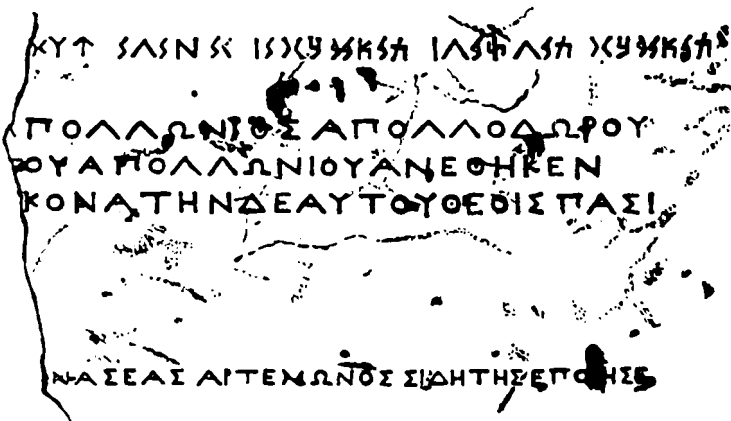 ΠΟΛΛΩΝΙΟΣ ΑΠΟΛΛΟΔΩΡΟΥ
ΟΥ ΑΠΟΛΛΩΝΙΟΥ ΑΝΕΘΗΚΕΝ
ΚΟΝΑ ΤΗΝΔΕ ΑΥΤΟΥ ΘΕΟΙΣ ΠΑΣΙ
ΝΑΣΕΑΣ ΑΡΤΕΜΩΝΟΣ ΣΙΔΗΤΗΣ ΕΠΟΙΗΣΕ